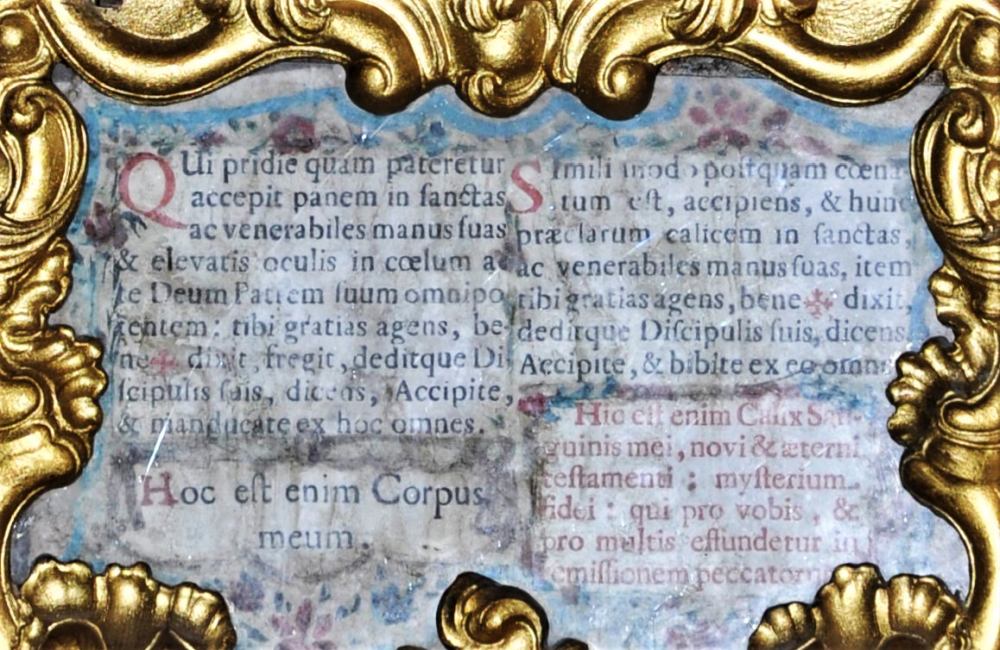 QUi pridie quam pateretur
accepit panem in sanctas
ac venerabiles manus suas
& elevatis oculis in cœlum ad
te Deum Patrem suum omnipo
tentem: tibi gratias agens, be-
ne✠ dixit, fregit, deditque Di
scipulis suis, dicens, Accipite,
& manducate ex hoc omnes.
Hoc est enim Corpus
meum.
Simili modo postquam cœna-
tum est, accipiens, & hunc
præclarum calicem in sanctas,
ac venerabiles manus suas, item
tibi gratias agens, bene✠ dixit,
deditque Discipulis suis, dicens,
Accipite, & bibite ex eo omnes
Hic est enim Calix San-
guinis mei, novi & æterni
testamenti : mysterium
fidei : qui pro vobis, &
pro multis effundetur in
remissionem peccatorum